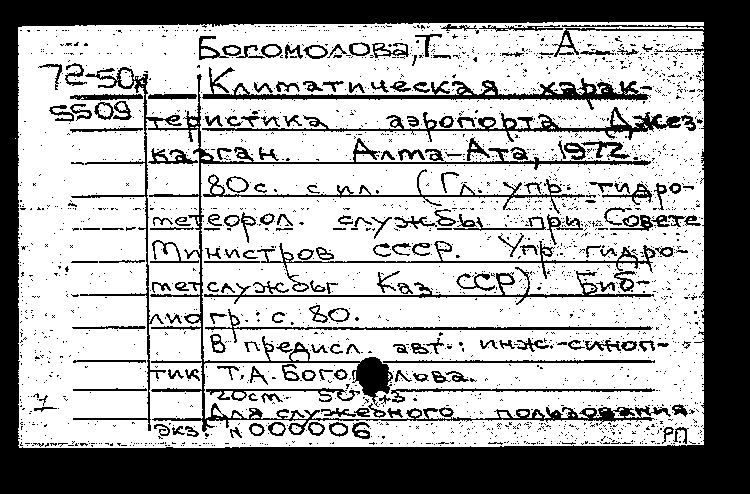 Богомолова, Т. А
72-50к Климатическая харак-
5509 теристика аэропорта Джез-
казган. Алма-Ата, 1972
80 с. с ил. (Гл. упр. гидро-
метеорол. службы при Совете
Министров СССР. Упр. гидро-
метслужбы Каз ССР). Биб-
лиогр.: с. 80.
В предисл. авт.: инж.-синоп-
тик Т.А. Богомолова.
20см 50 экз.
Для служебного пользования.
экз. N 000006. РП